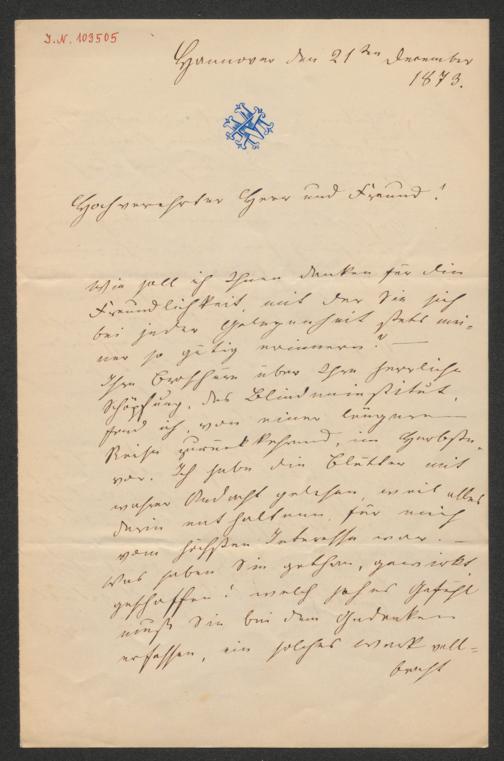 I.N. 103505
Hannover den 21ten December
1873.
Hochverehrter Herr und Freund!
Wie soll ich Ihnen danken für die
Freundlichkeit, mit der Sie sich
bei jeder Gelegenheit stets mei-
ner so gütig erinnern? —
Ihre Broschüre über Ihre herrliche
Schöpfung, das Blindeninstitut,
fand ich, von einer längeren
Reise zurückkehrend, im Herbste
vor. Ich habe die Blätter mit
wahrer Andacht gelesen, weil alles
darin enthaltene für mich
vom höchsten Interesse war. —
Was haben Sie gethan, gewirkt
geschaffen! welch hohes Gefühl
muß Sie bei dem Gedanken
erfassen, ein solches Werk voll-
bracht